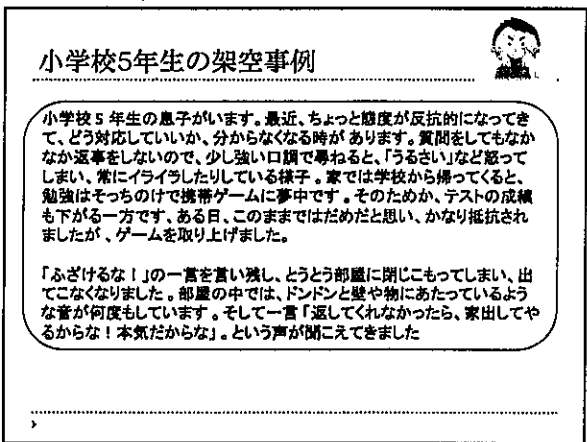 小学校5年生の架空事例
小学校５年生の息子がいます。最近、ちょっと態度が反抗的になってき
て、どう対応していいか、分からなくなる時が あります。質問をしてもなか
なか返事をしないので、少し強い口調で尋ねると、「うるさい」など怒って
しまい、常にイライラしたりしている様子 。家では学校から帰ってくると、
勉強はそっちのけで携帯ゲームに夢中です 。そのためか、テストの成績
も下がる一方です、ある日、このままではだめだと思い、かなり抵抗され
ましたが 、ゲームを取り上げました。
「ふざけるな！」の一言を言い残し、とうとう部屋に閉じこもってしまい、出
てこなくなりました 。部屋の中では、ドンドンと壁や物にあたっているよう
な音が何度もしています 。そして一言「返してくれなかったら、家出してや
るからな！本気だからな」。という声が聞こえてきました